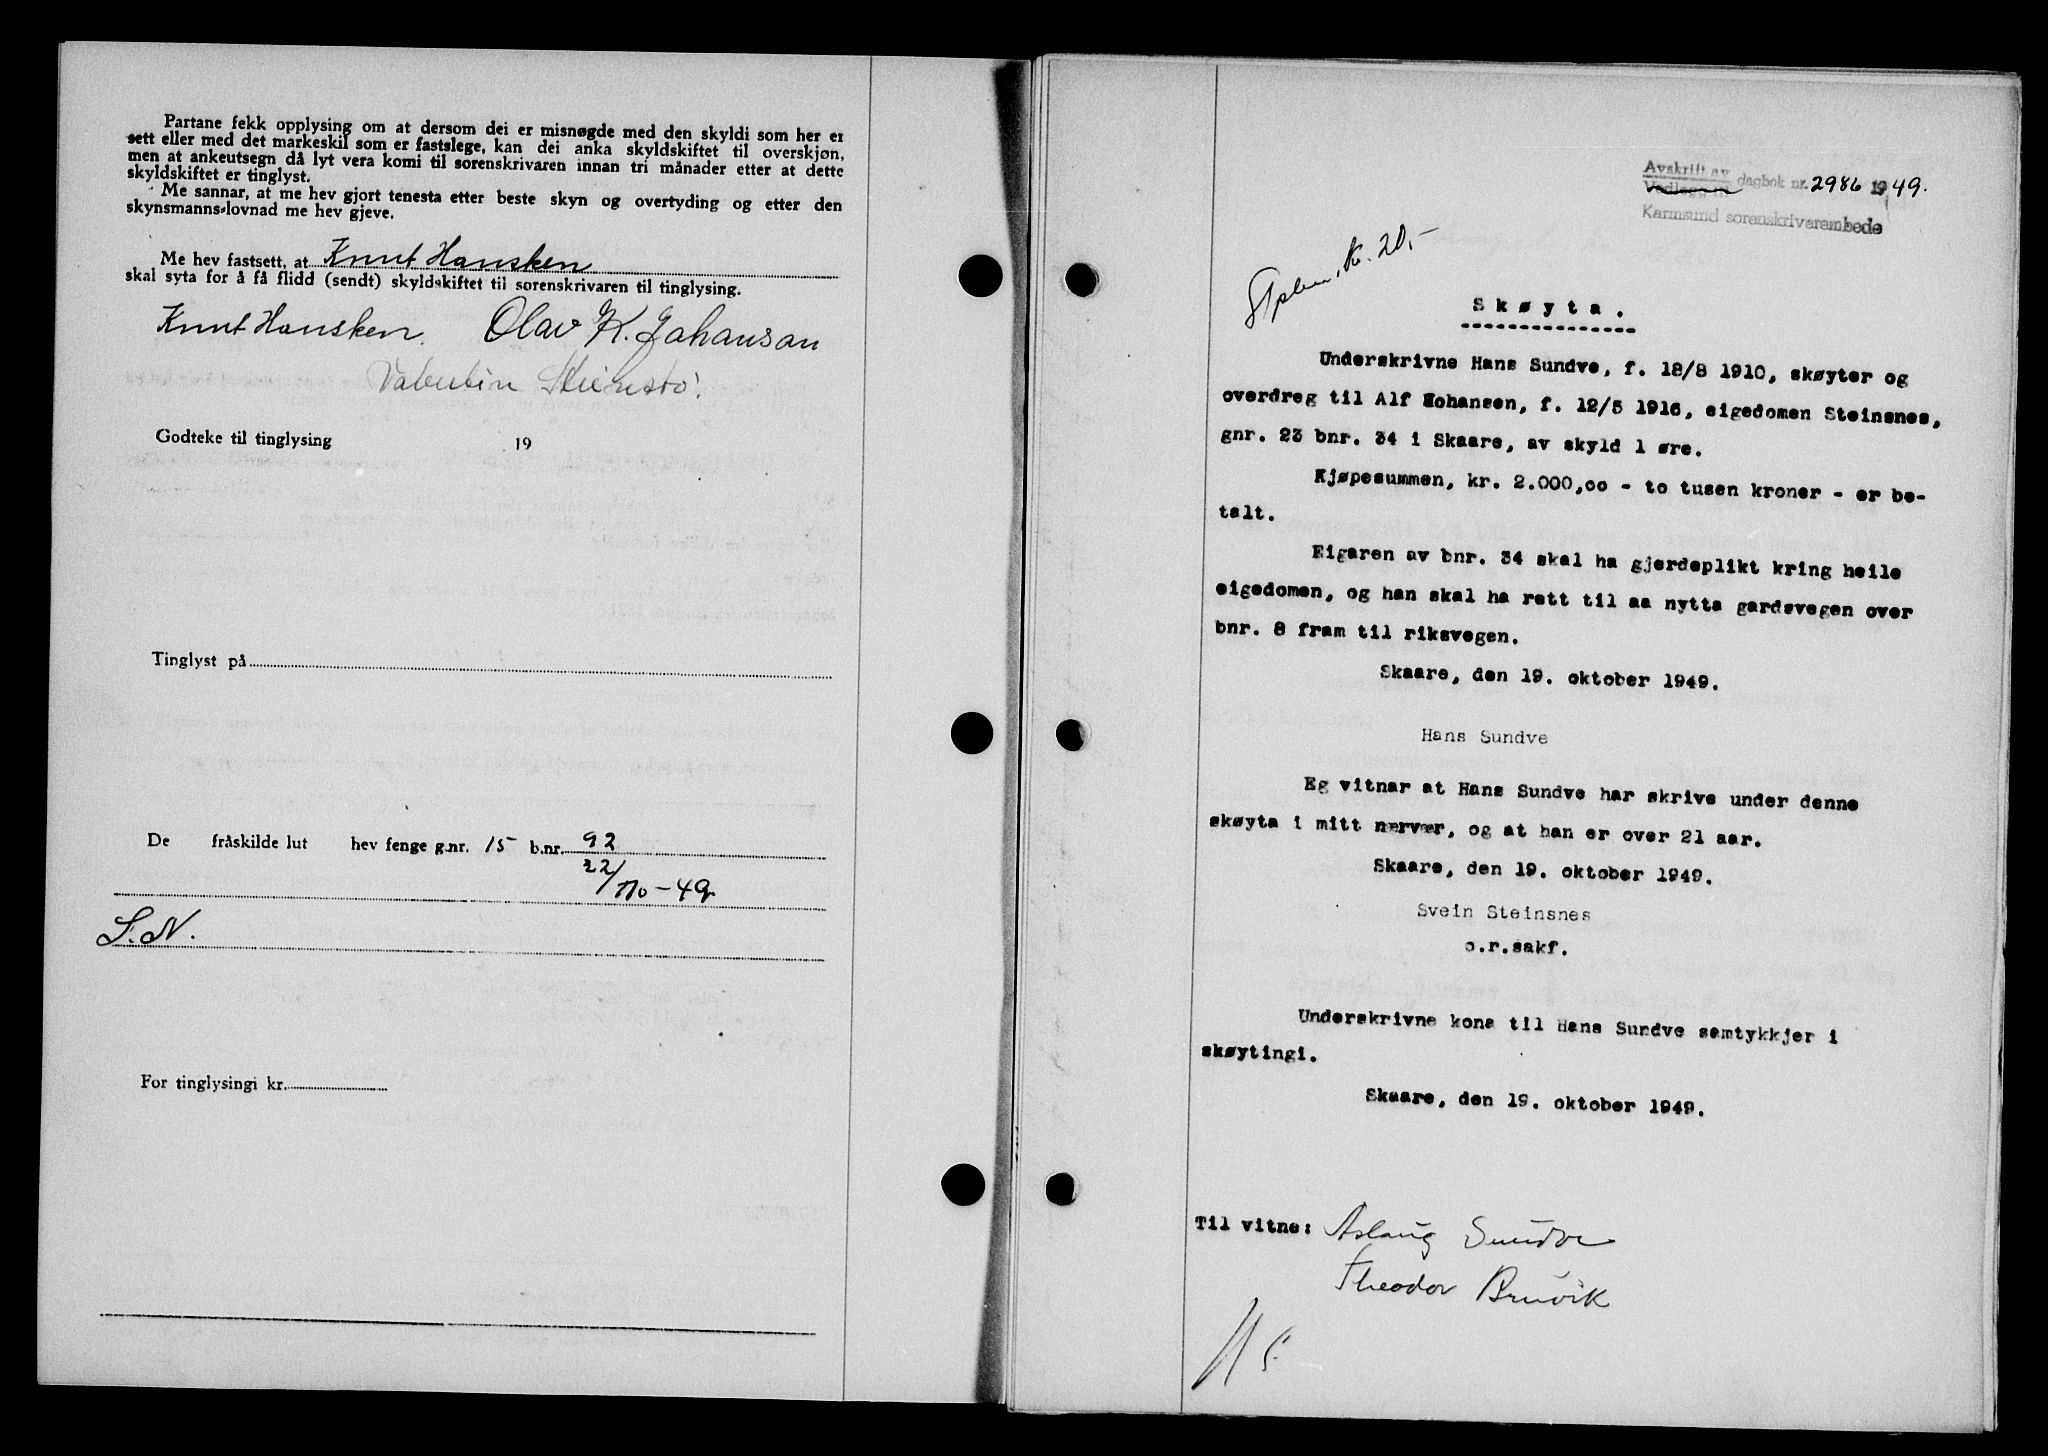 Partane fekk opplysing om at dersom dei er misnøgde med den skyldi som her er
sett eller med det markeskil som er fastslege, kan dei anka skyldskiftet til overskjøn,
men at ankeutsegn då lyt vera komi til sorenskrivaren innan tri månader etter at dette
skyldskiftet er tinglyst.
Me sannar, at me hev gjort tenesta etter beste skyn og overtyding og etter den
skynsmanns-lovnad me hev gjeve.
Me hev fastsett, at Knut Hansken
skal syta for å få flidd (sendt) skyldskiftet til sorenskrivaren til tinglysing.
Knut Hansken. Olav K. Johansan
Valentin Steinstø.
Godteke til tinglysing 19
Tinglyst på
De fråskilde lut hev fenge g.nr. 15 b.nr. 92
22/10-49
S.N.
For tinglysingi kr.
Avskrift av
Vedlegg til dagbok nr. 2986 1949.
Karmsund sorenskriverembede
k. 20,-
Skøyta.
Underskrivne Hans Sundve, f. 18/8 1910, skøyter og
overdreg til Alf Hohansen, f. 12/5 1916, eigedomen Steinsnes,
gnr. 23 bnr. 34 i Skaare, av skyld 1 øre.
Kjøpesummen, kr. 2.000,00 - to tusen kroner - er be-
talt.
Eigaren av bnr. 34 skal ha gjerdeplikt kring heile
eigedomen, og han skal ha rett til aa nytta gardsvegen over
bnr. 8 fram til riksvegen.
Skaare, den 19. oktober 1949.
Hans Sundve
Eg vitnar at Hans Sundve har skrive under denne
skøyta i mitt nærvær, og at han er over 21 aar.
Skaare, den 19. oktober 1949.
Svein Steinsnes
o.r.sakf.
Underskrivne kona til Hans Sundve samtykkjer i
skøytingi.
Skaare, den 19. oktober 1949.
Til vitne: Aslaug Sundve
Theodor Bruvik